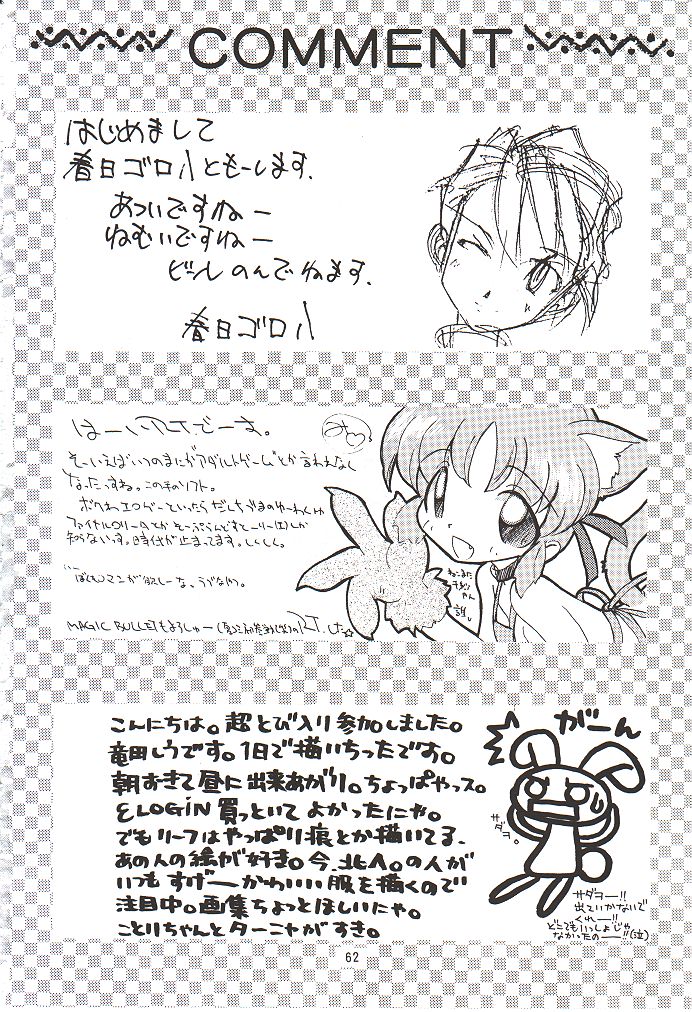 COMMENT
はじめまして
春日ゴロ八ともーします.
あついですねー
ねむいですねー
ビール のんで ねます.
春日ゴロ八
はーい でーす。
そーいえばいつのまにかアダルトゲームとか言われなく
なったっすね。この手のソフト。
ボクわーエロゲーといったら
知らないっす。時代が止まってます。しくしく。
マンが欲しーな、うぷぷ。
MAGIC BULLETもよろしゅー
ねこまた
ちゃん
誰。
こんにちは。超とび入り参加しました。
竜田しうです。1日で描いちったです。
朝おきて昼に出来あがり。ちょっぱやっス。
E LOGiN 買っといて よかったにゃ。
でもリーフはやっぱり痕とか描いてる、
あの人の絵が好き。今、北へ。の人が
いつも すげーーかわいい服を描くので
注目中。画集ちょっとほしいにゃ。
ことりちゃんとターニャがすき。
がーん
サダヲ。
サダヲー!!
出ていかないで
くれー!!
どこでもいっしょじゃ
なかったのー!!(泣)
62